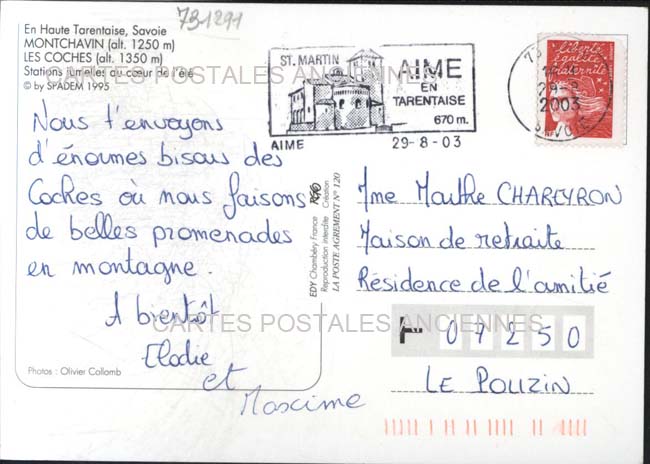 731291
En Haute Tarentaise, Savoie
MONTCHAVIN (alt. 1250 m)
LES COCHES (alt. 1350 m)
Stations jumelles au cœur de l'été
© by SPADEM 1995
CARTES POSTALES ANCIENNES
ST. MARTIN
AIME
EN
TARENTAISE
670 m.
AIME
29-8-03
73
29-8
2003
SAVOIE
liberté
égalité
fraternité
Nous t'envoyons
d'énormes bisous des
Coches où nous faisons
de belles promenades
en montagne.
A bientôt
Elodie
et
Maxime
EDY Chambéry France
Reproduction interdite Création
LA POSTE AGREMENT N° 120
Mme Marthe CHAREYRON
Maison de retraite
Résidence de l'amitié
07250
LE POUZIN
CARTES POSTALES ANCIENNES
Photos : Olivier Collomb